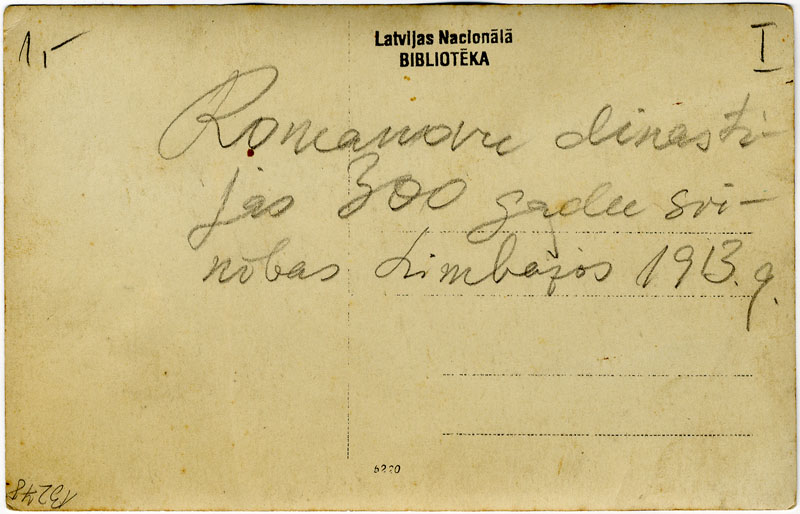 1,-
Latvijas Nacionālā
BIBLIOTĒKA
I
Romanovu dinasti-
jas 300 gadu svi-
nības Limbažos 1913. g.
6220
13248